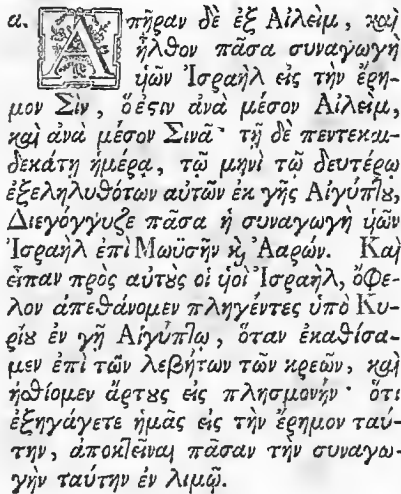 α. Ἀπῆραν δὲ ἐξ Αἰλεὶμ, καὶ
ἦλθον πᾶσα συναγωγὴ
ὑῶν Ἰσραὴλ εἰς τὴν ἔρη-
μον Σὶν, ὅ ἐϛιν ἀνὰ μέσον Αἰλεὶμ,
καὶ ἀνὰ μέσον Σινᾶ· τῇ δὲ πεντεκαι-
δεκάτῃ ἡμέρᾳ, τῷ μηνὶ τῷ δευτέρῳ
ἐξεληλυθότων αὐτῶν ἐκ γῆς Αἰγύπτȣ,
Διεγόγγυζε πᾶσα ἡ συναγωγὴ ὑῶν
Ἰσραὴλ ἐπὶ Μωϋσῆν κϳ Ἀαρών. Καὶ
εἶπαν πρὸς αὐτȣς οἱ ὑοὶ Ἰσραὴλ, ὄφε-
λον ἀπεθάνομεν πληγέντες ὑπὸ Κυ-
ρίȣ ἐν γῇ Αἰγύπτῳ, ὅταν ἐκαθίσα-
μεν ἐπὶ τῶν λεβήτων τῶν κρεῶν, καὶ
ἠσθίομεν ἄρτȣς εἰς πλησμονήν· ὅτι
ἐξηγάγετε ἡμᾶς εἰς τὴν ἔρημον ταύ-
την, ἀποκτεῖναι πᾶσαν τὴν συναγω-
γὴν ταύτην ἐν λιμῷ.